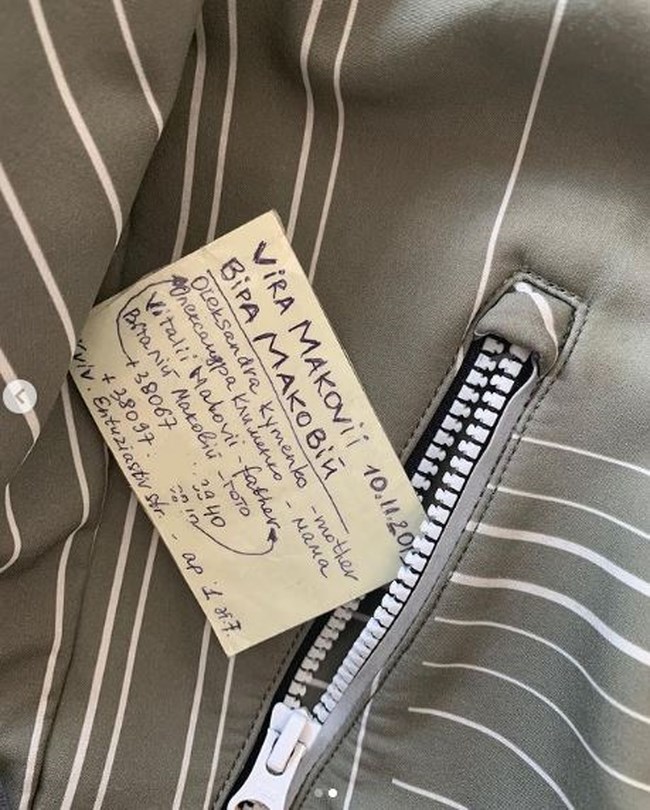 VIRA MAKOVII 10.11.20
ВІРА МАКОВІЙ
Oleksandra Kymenko - mother
Олександра Клименко - мама
Vitalii Makovii - father
Віталій Маковій - тато
+38067
+38097
40
Entuziastiv str.